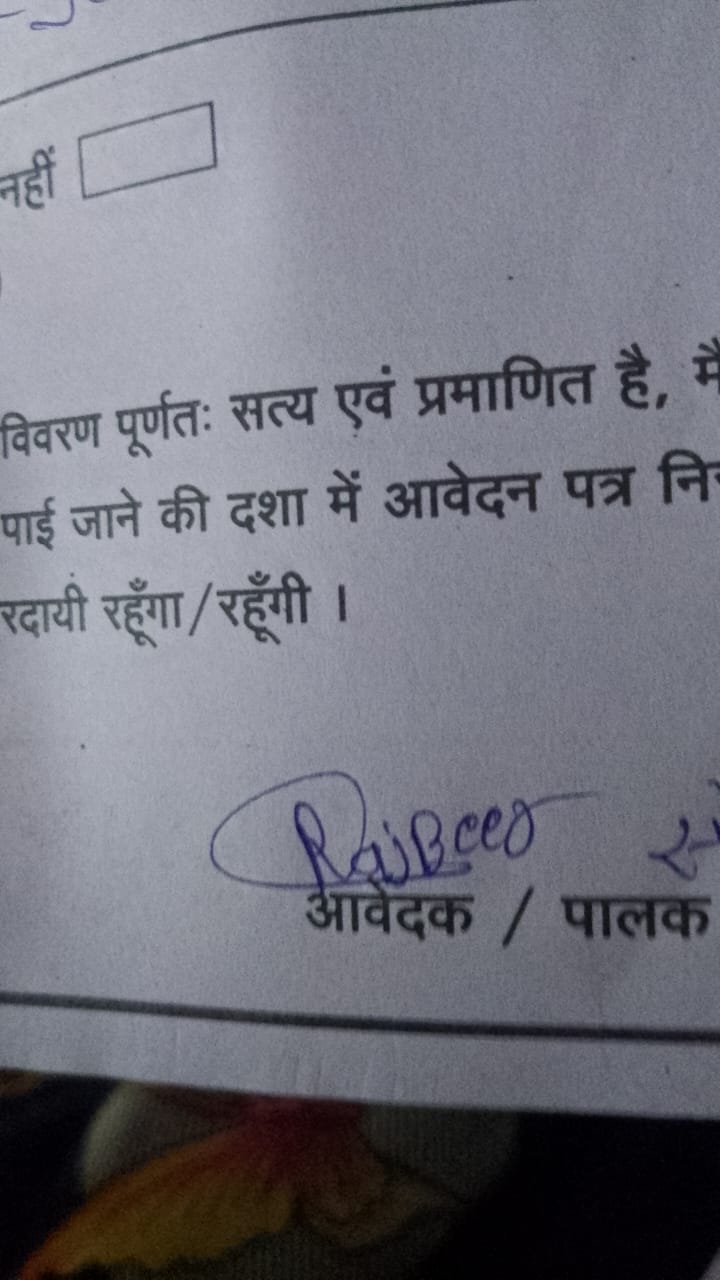 नहीं
विवरण पूर्णतः सत्य एवं प्रमाणित है,
पाई जाने की दशा में आवेदन पत्र
रहूँगा/रहूँगी ।
RajBeer
आवेदक / पालक